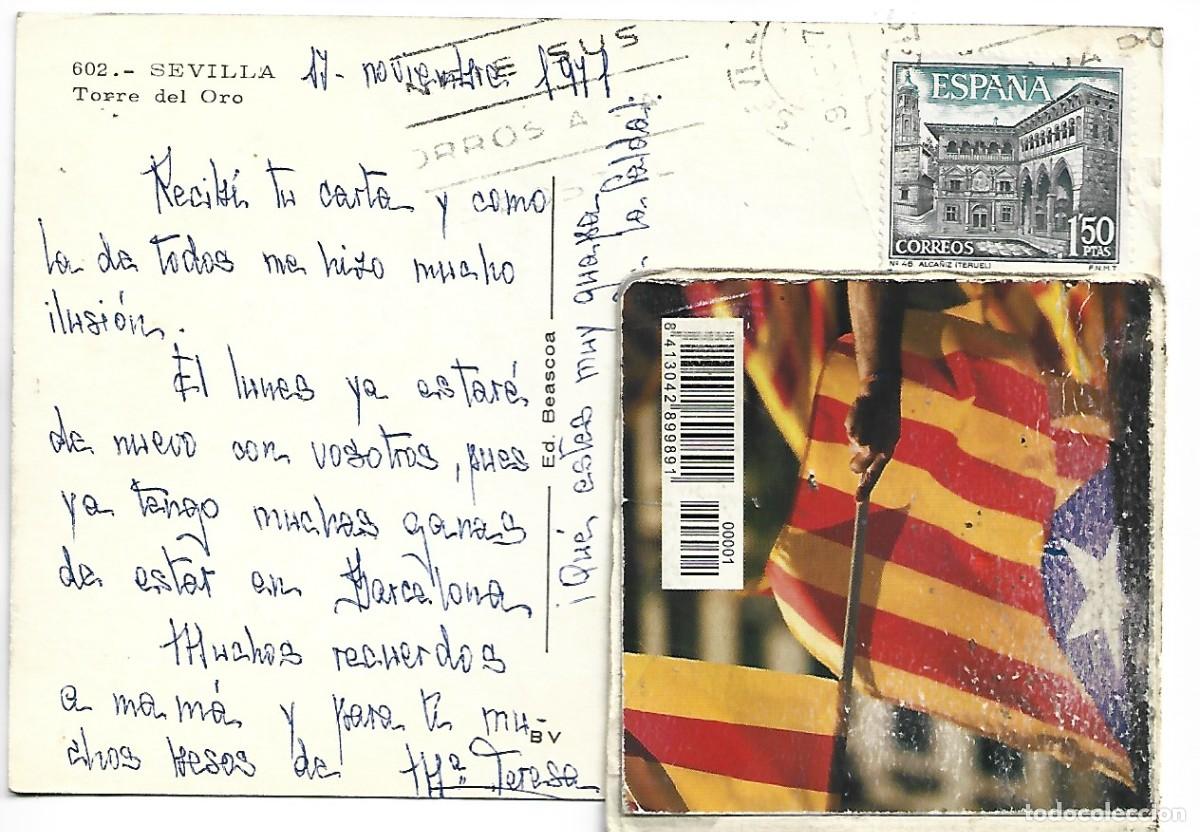 602.- SEVILLA
Torre del Oro
17 - noviembre 1971
ORROS A
ESPAÑA
CORREOS
1'50
PTAS
Nº 46 ALCAÑIZ (TERUEL)
F.N.M.T
Recibí tu carta y como
la de todos me hizo mucho
ilusión.
El lunes ya estaré
de nuevo con vosotros, pues
ya tengo muchas ganas
de estar en Barcelona
Muchos recuerdos
a mamá y para ti mu-
chos besos de Mª Teresa
Ed. Beascoa
BV
¡Qué estés muy guapa
8413042899891
00001
todocoleccion